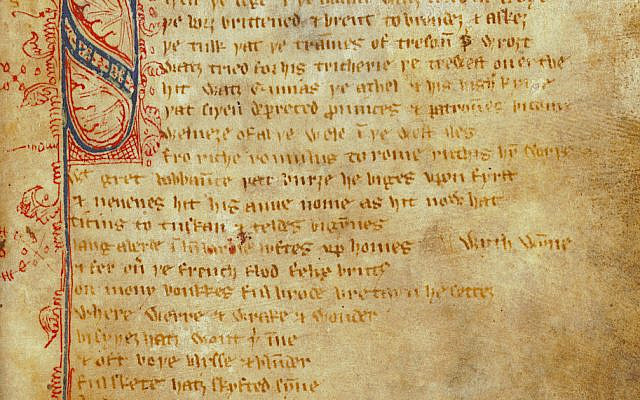 þe borȝ brittened & brent to brondeȝ & askez
þe tulk þat þe tra̅mes of tresou̅ þ̵ wroȝt
watz tried for his tricherie þe trewest on erthe
hit watz Ennias þe athel & his highe kynde
þat siþen depreced prouinces & patrou̅es bicome
welneȝe of al þe wele i̅ þe west iles
fro riche romulus to rome ricchis hy̅ swyþe
wt gret bobbau̅ce þat burȝe he biges vpon fyrst
& neuenes hit his aune nome as hit now hat
ticius to tuskan & teldes bigy̅nes
langaberde i̅ lu̅bardie lyftes vp homes wyth wy̅ne
& fer ou̅ þe french flod felix brutus
on mony bonkkes ful brode bretayn he settez
where werre & wrake & wonder
bi syþez hatz wont þ̵ i̅ne
& oft boþe blysse & blu̅der
ful skete hatz skyfted sy̅ne